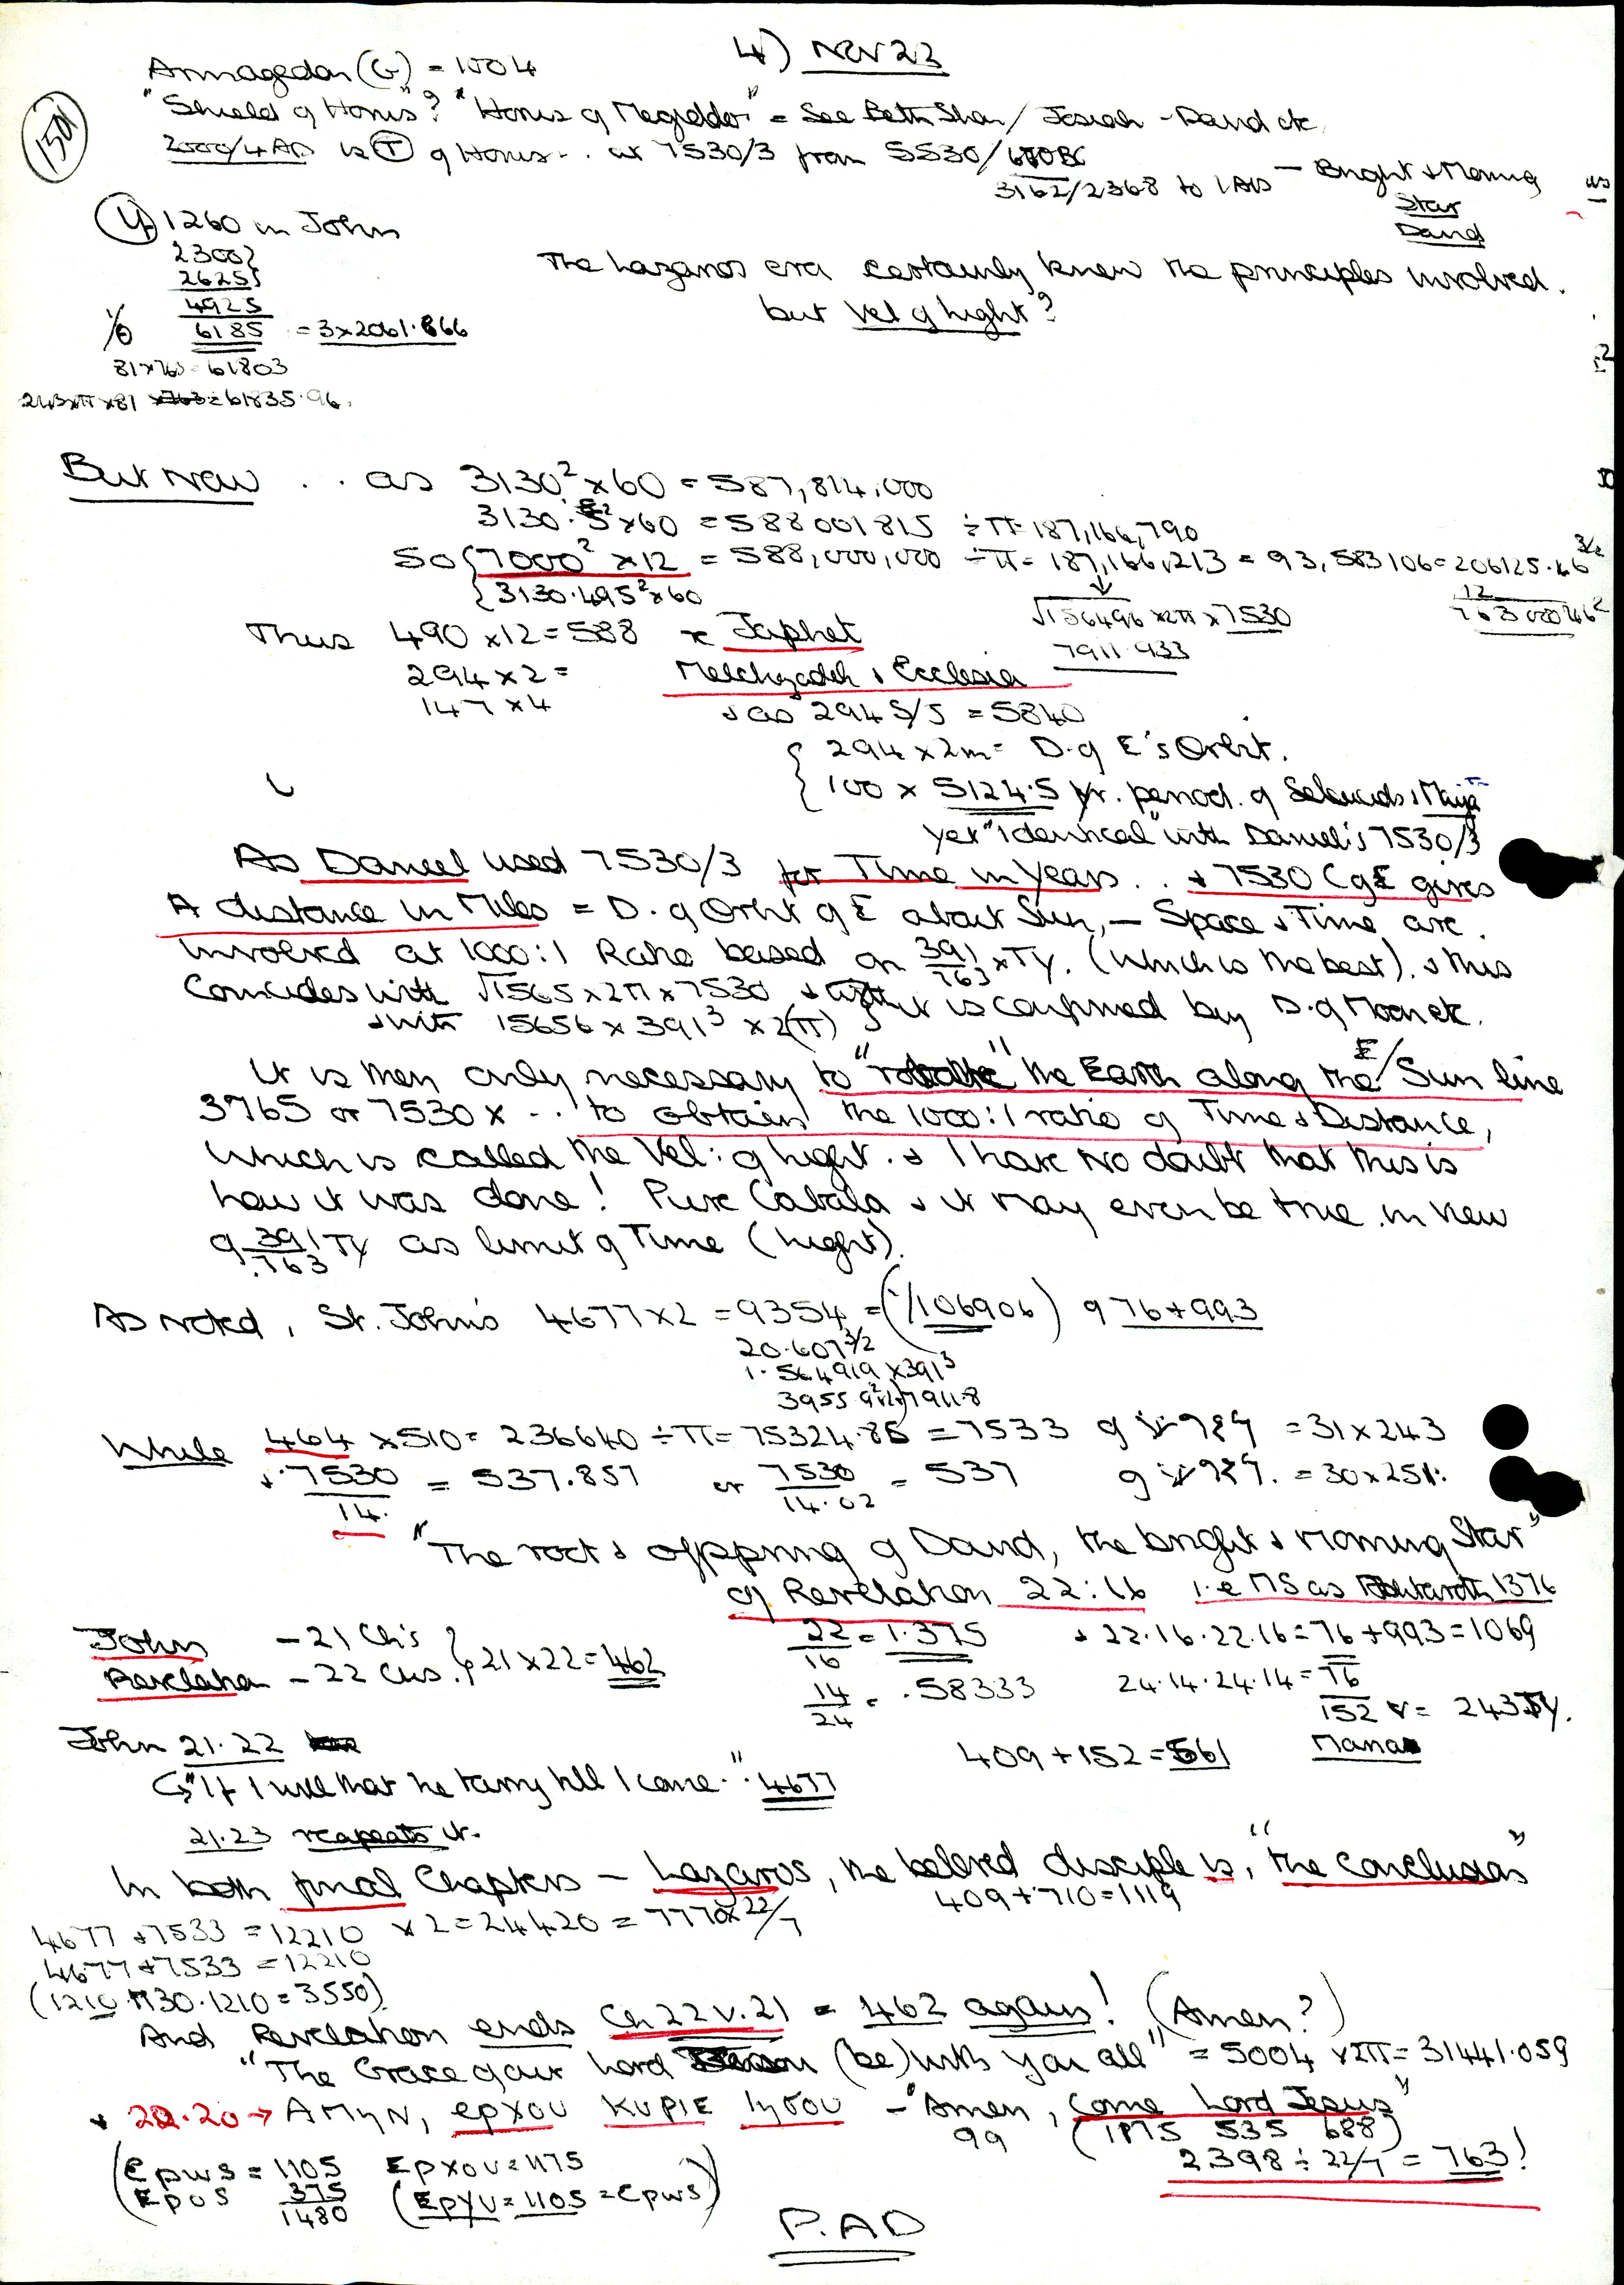 4) Nov 23
Armagedon (G) = 1004
"Shield of Horus"? "Horus of Megiddo" = See Beth Shan / Josiah - David etc.
1501
2000/4 AD is T of Horus... at 7530/3 from 5530/
3162/2368 to 1 AD - Bright & Morning
Star
David
4) 1260 in John
2300
2625
4925
6185 = 3 x 2061.866
81 x 763 = 61803
243 x π x 81 = 61835.96
The Lazaros era certainly knew the principles involved.
but Vel of Light?
But now .. as 3130² x 60 = 587,814,000
3130.5² x 60 = 588001815 ÷ π = 187,166,790
50 { 7000² x 12 = 588,000,000 ÷ π = 187,166,213 = 93,583106 = 206125.46 3/2
{ 3130.495² x 60
√156496 x 2π x 7530
7911.933
12
Thus 490 x 12 = 588 = Japhet
294 x 2 = Melchizadek & Ecclesia
147 x 4 & as 294 5/5 = 5840
{ 294 x 2m = D. of E's Orbit.
{ 100 x 5124.5 yr. period. of Seleucids & Maya
yet "identical" with Daniel's 7530/3
As Daniel used 7530/3 for Time in Years.. & 7530 C of E gives
A distance in Miles = D. of Orbit of E about Sun, - Space & Time are
involved at 1000:1 Ratio based on 391/763 x TY. (which is the best). & this
Coincides with √1565 x 2π x 7530 & it is confirmed by D. of Moon etc.
& with 15656 x 391³ x 2(π)
It is then only necessary to "rotate" the Earth along the E/Sun line
3765 or 7530 x .. to obtain the 1000:1 ratio of Time & Distance,
which is called the Vel: of Light. & I have no doubt that this is
how it was done! Pure Cabala & it may even be true in view
of 391/.763 TY as limit of Time (Light).
As noted, St. John's 4677 x 2 = 9354 = (1/106906) of 76 + 993
20.607 3/2
1.564919 x 391³
3955.9
7911.8
While 464 x 510 = 236640 ÷ π = 75324.86 = 7533 of = 31 x 243
& 7530/14. = 537.857 or 7530/14.02 = 537 of = 30 x 251.
"The root & offspring of David, the bright & morning Star"
of Revelation 22:16 i.e MS as Ashtaroth 1376
John - 21 Ch's
Revelation - 22 Chs. } 21 x 22 = 462
22/16 = 1.375 & 22.16.22.16 = 76 + 993 = 1069
14/24 = .58333 24.14.24.14 = 76
152 = 243 TY.
John 21.22
409 + 152 = 561
"If I will that he tarry till I come.." 4677
21.23 reapeats it.
In both final Chapters - Lazaros, the beloved disciple is, "the conclusion"
409 + 710 = 1119
4677 + 7533 = 12210 x 2 = 24420 = 7770 x 22/7
4677 + 7533 = 12210
(1210.1130.1210 = 3550)
And Revelation ends Ch 22 v. 21 = 462 again! (Amen?)
"The Grace of our Lord (be) with you all" = 5004 x 2π = 31441.059
& 22.20 → AMHN, ερχου ΚυΡΙΕ Ιησου - "Amen, Come Lord Jesus"
99 (1175 535 688)
2398 ÷ 22/7 = 763!
(Ερως = 1105 Ερχου = 1175
Ερος 375 (Ερyυ = 1105 = Ερως)
1480
P. AD